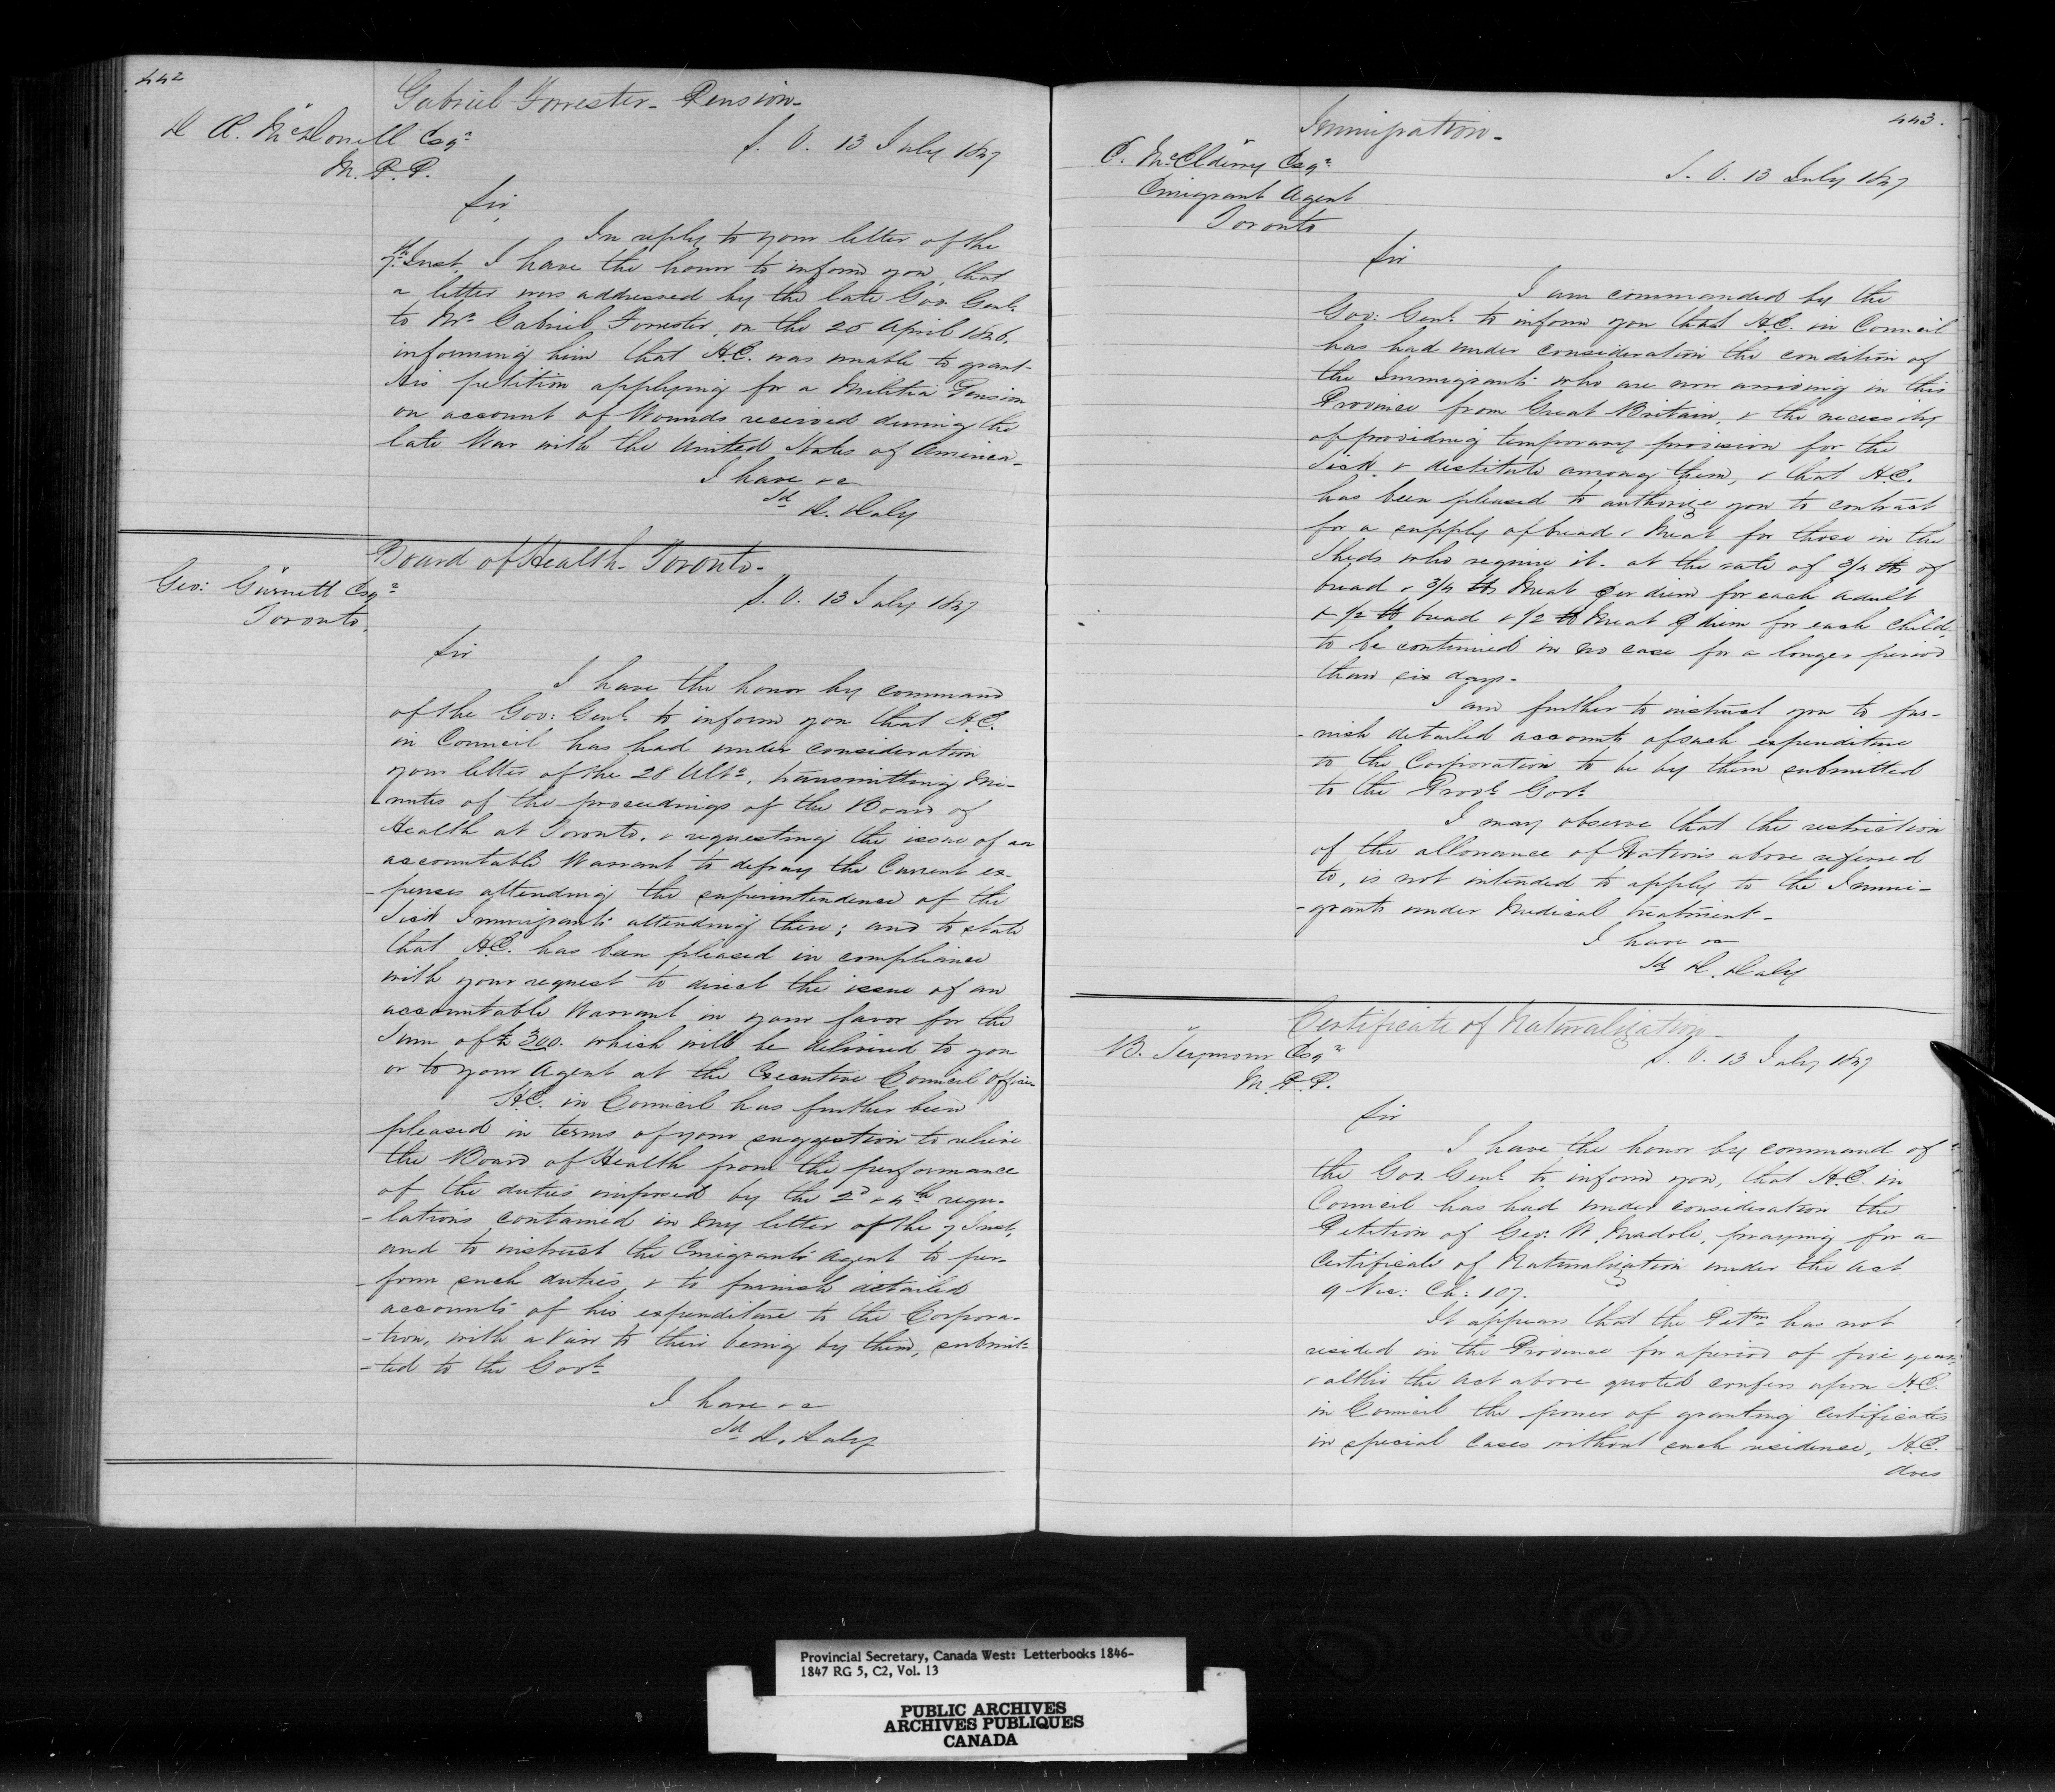 442
Gabriel Forrester - Pension -
D Æ. McDonell Esqr
M. P. P.
S. O. 13 July 1847
Sir,
In reply to your letter of the
7th Inst. I have the honor to inform you, that
a letter was addressed by the late Gov. Genl.
to Mr. Gabriel Forrester, on the 20 April 1846.
informing him that H.E. was unable to grant
his petition applying for a Militia Pension
on account of Wounds received during the
late War with the United States of America -
I have &c
Sd D. Daly
Board of Health - Toronto -
Geo: Gurnett Esqr
Toronto.
S. O. 13 July 1847
Sir
I have the honor by command
of the Gov: Genl. to inform you that H.E.
in Council has had under consideration
your letter of the 28 Ulto. transmitting Mi-
nutes of the proceedings of the Board of
Health at Toronto. & requesting the issue of an
accountable Warrant to defray the Current ex-
-penses attending the superintendence of the
Sick Immigrants attending there; and to state
that H.E. has been pleased in compliance
with your request to direct the issue of an
accountable Warrant in your favor for the
Sum of £300. which will be delivered to you
or to your Agent at the Executive Council Office.
H.E. in Council has further been
pleased in terms of your suggestion to relieve
the Board of Health from the performance
of the duties imposed by the 2d & 4th regu-
-lations contained in my letter of the 7 Inst.
and to instruct the Emigrant Agent to per-
-form such duties, & to furnish detailed
accounts of his expenditure to the Corpora-
-tion, with a View to their being by them, submit-
-ted to the Govt.
I have &c
Sd D. Daly
443.
Immigration -
E. McElderry Esqr
Emigrant Agent
Toronto
S. O. 13 July 1847
Sir
I am commanded by the
Gov: Genl. to inform you that H.E. in Council
has had under consideration the condition of
the Immigrants who are now arriving in this
Province from Great Britain, & the necessity
of providing temporary provision for the
Sick & destitute among them, & that H.E.
has been pleased to authorize you to contract
for a supply of bread & Meat for those in the
Sheds who require it. at the rate of 3/4 lb of
bread & 3/4 lb Meat per diem for each adult
& 1/2 lb bread & 1/2 lb Meat ⅌ diem for each Child,
to be continued in no case for a longer period
than six days -
I am further to instruct you to fur-
-nish detailed accounts of such expenditure
to the Corporation to be by them submitted
to the Provl. Govt.
I may observe that the restriction
of the allowance of Rations above referred
to, is not intended to apply to the Immi-
-grants under Medical treatment -
I have &c
Sd D. Daly
Certificate of Naturalization -
B. Seymour Esqr
M. P. P.
S. O. 13 July 1847
Sir
I have the honor by command of
the Gov. Genl. to inform you, that H.E. in
Council has had under consideration the
Petition of Geo: W. Madole, praying for a
Certificate of Naturalization under the Act
9 Vic: Ch: 107.
It appears that the Petnr. has not
resided in the Province for a period of five years,
& altho the Act above quoted confers upon H.E.
in Council the power of granting Certificates
in special Cases without such residence, H.E.
does
Provincial Secretary, Canada West: Letterbooks 1846-
1847 RG 5, C2, Vol. 13
PUBLIC ARCHIVES
ARCHIVES PUBLIQUES
CANADA